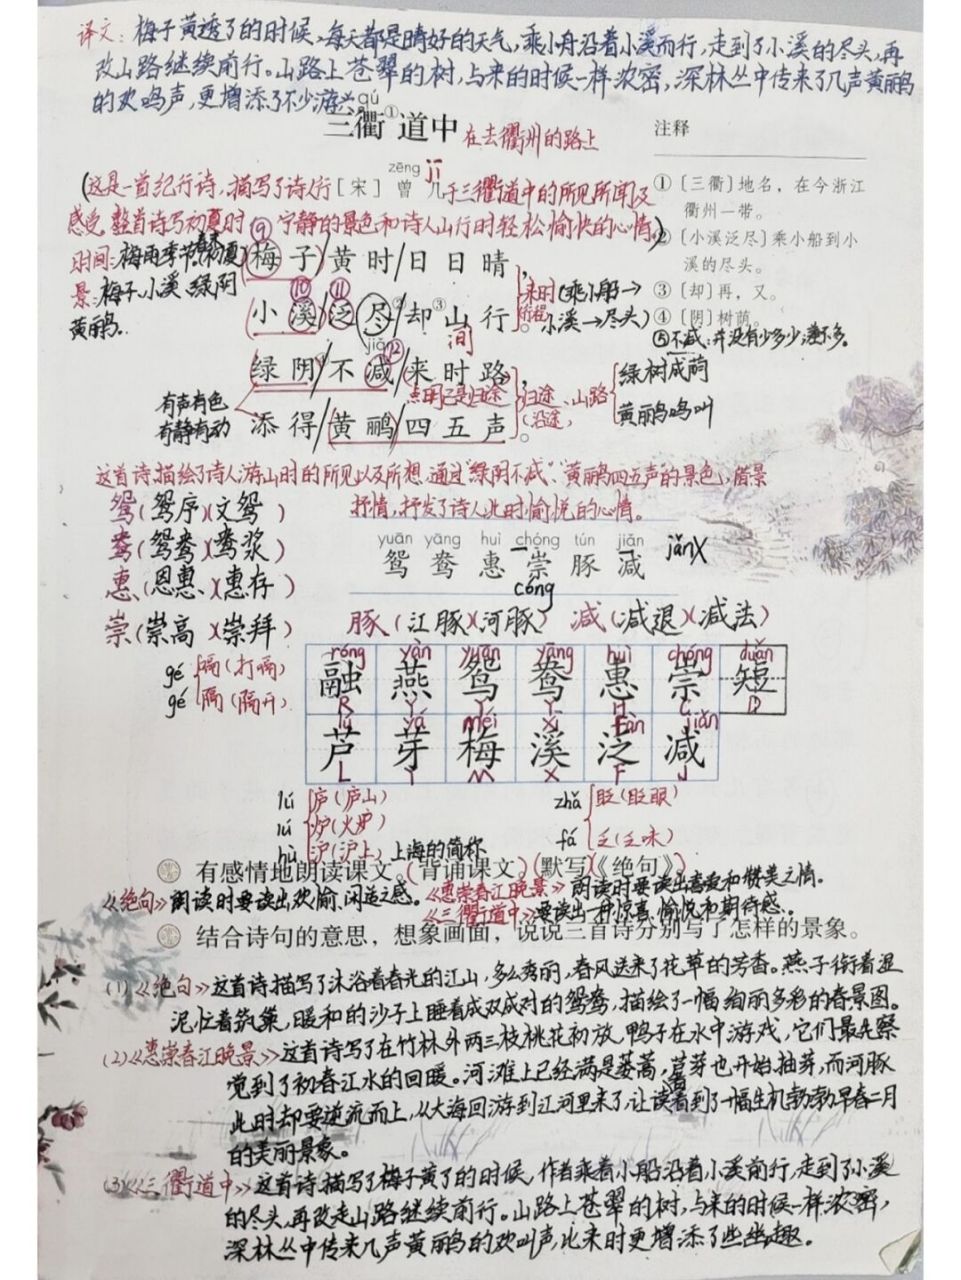 译文：梅子黄透了的时候，每天都是晴好的天气，乘小舟沿着小溪而行，走到了小溪的尽头，再
改山路继续前行。山路上苍翠的树，与来的时候一样浓密，深林丛中传来了几声黄鹂
的欢鸣声，更增添了不少游兴。
qú
三衢①道中 在去衢州的路上
注释
zēng jī
(这是一首纪行诗，描写了诗人行[宋]曾几于三衢道中的所见所闻及
感受 整首诗写初夏时 宁静的景色和诗人山行时轻松愉快的心情。)
①〔三衢〕地名，在今浙江
衢州一带。
②〔小溪泛尽〕乘小船到小
溪的尽头。
③〔却〕再，又。
④〔阴〕树荫。
⑤不减：并没有少多少，差不多。
时间：梅雨季节 初夏
景：梅子、小溪、绿阴
黄鹂。
⑨
梅子/黄时/日日晴，
⑩ ⑪
小溪/泛尽②/却③山行。
来时(乘小船→
小溪→尽头)
jiǎn ⑫
绿阴/不减/来时路，
点明已是归途
添得/黄鹂/四五声。
有声有色
有静有动
归途、山路
(沿途)
绿树成荫
黄鹂鸣叫
这首诗描绘了诗人游山时的所见以及所想，通过“绿阴不减”、“黄鹂四五声的景色”，借景
抒情，抒发了诗人此时愉悦的心情。
鸳(鸳序)(文鸳)
鸯(鸳鸯)(鸯浆)
惠(恩惠)(惠存)
崇(崇高)(崇拜)
yuān yāng huì chóng tún jiǎn
jǎnX
鸳 鸯 惠 崇 豚 减
cóng
豚(江豚)(河豚) 减(减退)(减法)
gé 嗝(打嗝)
gé 隔(隔开)
róng yàn yuān yāng huì chóng duǎn
融 燕 鸳 鸯 惠 崇 短
R Y Y Y H C D
lú yá méi xī fàn jiǎn
芦 芽 梅 溪 泛 减
L Y M X F J
lú 庐(庐山)
lú 炉(火炉)
hù 沪(沪上) 上海的简称
zhǎ 眨(眨眼)
fá 乏(乏味)
有感情地朗读课文。(背诵课文。)(默写《绝句》)
《绝句》朗读时要读出欢愉、闲适之感。《惠崇春江晚景》朗读时要读出喜爱和赞美之情。
《三衢道中》要读出一种惊喜、愉悦和期待感。
结合诗句的意思，想象画面，说说三首诗分别写了怎样的景象。
(1)《绝句》这首诗描写了沐浴着春光的江山，多么秀丽，春风送来了花草的芳香。燕子衔着湿
泥忙着筑巢，暖和的沙子上睡着成双成对的鸳鸯，描绘了一幅绚丽多彩的春景图。
(2)《惠崇春江晚景》这首诗写了在竹林外两三枝桃花初放，鸭子在水中游戏，它们最先察
觉到了初春江水的回暖。河滩上已经满是蒌蒿，芦芽也开始抽芽，而河豚
此时却要逆流而上，从大海回游到江河里来了，让读者看到了一幅生机勃勃早春二月
的美丽景象。
(3)《三衢道中》这首诗描写了梅子黄了的时候，作者乘着小船沿着小溪前行，走到了小溪
的尽头，再改走山路继续前行。山路上苍翠的树，与来的时候一样浓密，
深林丛中传来几声黄鹂的欢叫声，比来时更增添了些幽趣。